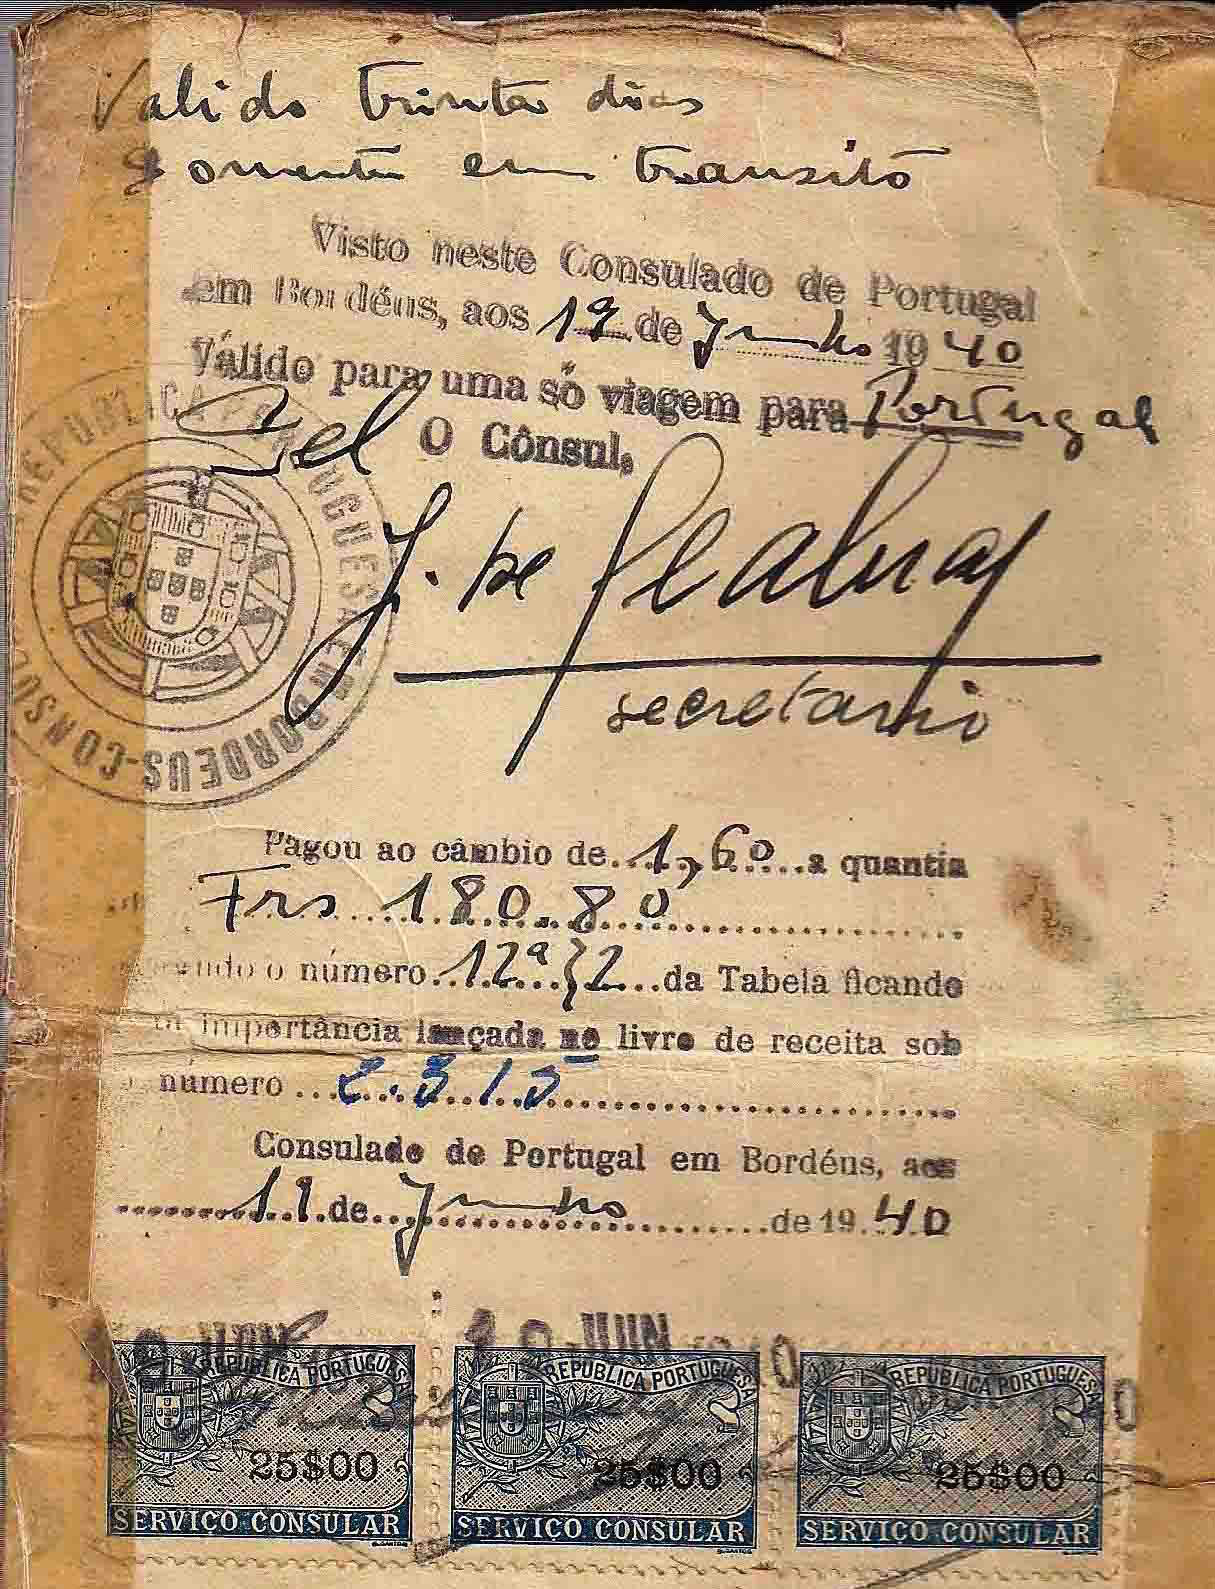 Valido trinta dias
somente em transito
Visto neste Consulado de Portugal
em Bordéus, aos 19 de Junho 1940
Válido para uma só viagem para Portugal
O Cônsul,
REPUBLICA PORTUGUESA EM BORDEUS-CONSUL
J. de Seabra
secretario
Pagou ao câmbio de 1,60 a quantia
Frs 180.80
o número 12ª 2 da Tabela ficando
importância lançada no livro de receita sob
número 2.315
Consulado de Portugal em Bordéus, aos
19 de Junho de 1940
19 JUN 1940
REPUBLICA PORTUGUESA REPUBLICA PORTUGUESA REPUBLICA PORTUGUESA
25$00 25$00 25$00
SERVIÇO CONSULAR SERVIÇO CONSULAR SERVIÇO CONSULAR